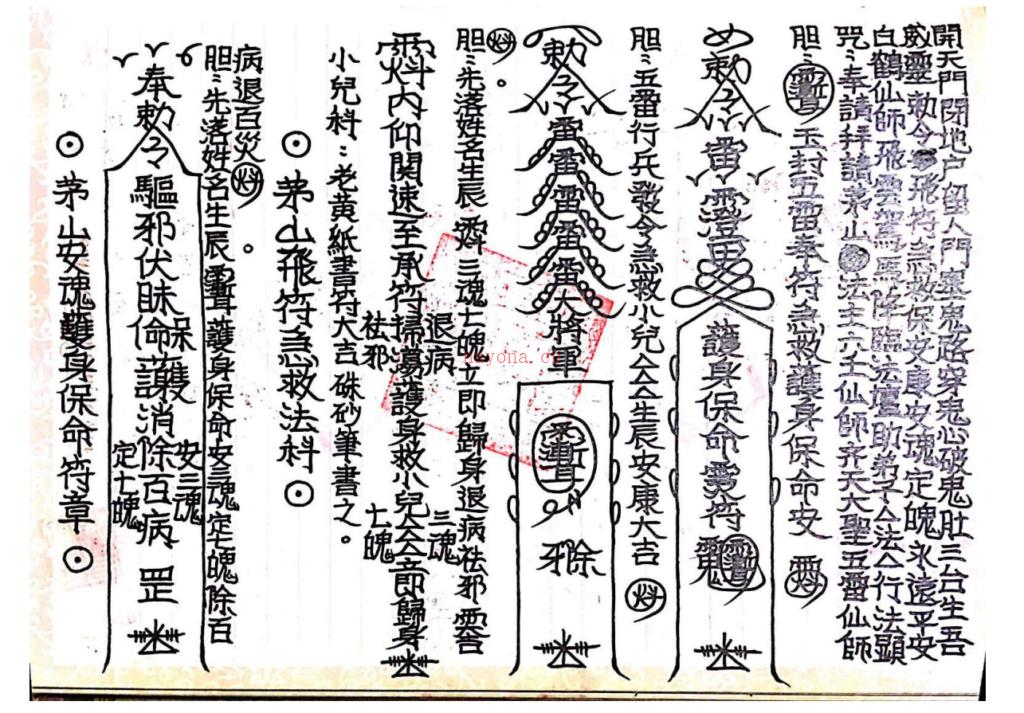 開天門閉地户留人門塞鬼路穿鬼心破鬼肚三台生吾
白鶴仙師飛雲駕馬降臨法壇助弟子仝法仝行法顯
威靈勅令飛符急救保安康安魂定魄永遠平安
咒:奉請拜請茅山法主六壬仙師齐天大聖五雷仙師
胆:玉封五雷奉符急救護身保命安
勅令雷 護身保命靈符
胆:五雷行兵發令急救小兒仝仝生辰安康大吉
勅令雷雷雷雷雷大將軍
除邪
胆:先落姓名生辰 三魂七魄立即歸身退病袪邪
内仰関速至承符退病袪邪掃蕩護身救小兒仝仝三魂七魄立即歸身
小兒科:老黄紙書符大吉硃砂筆書之。
⊙茅山飛符急救法科⊙
病退百災。
胆:先落姓名生辰 護身保命安三魂定七魄除百
奉勅令驅邪伏昧保命護消除百病安三魂定七魄罡
⊙茅山安魂護身保命符章⊙